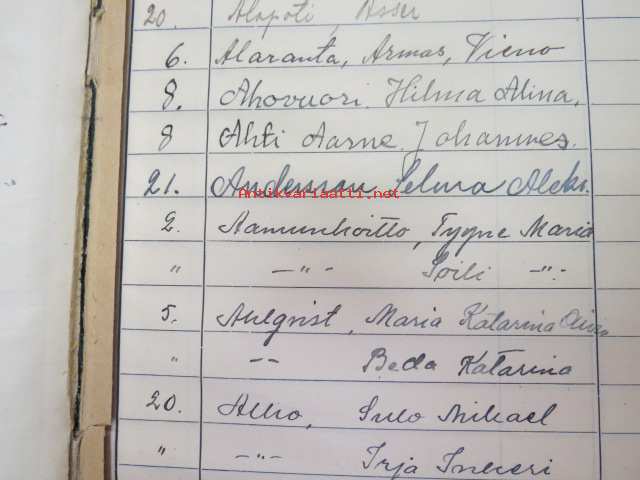 20. Alapoti, Asser
6. Alaranta, Armas, Vieno
8. Ahovuori Hilma Alina,
8 Ahti Aarne Johannes.
21. Andersson Selma Aleks.
Antikvariaatti.net
2. Aamunkoitto, Tyyne Maria
" —"— Soili —"—
5. Ahlqvist, Maria Katarina
" —— Beda Katarina
20. Alho, Sulo Mikael
" —"— Irja Inkeri